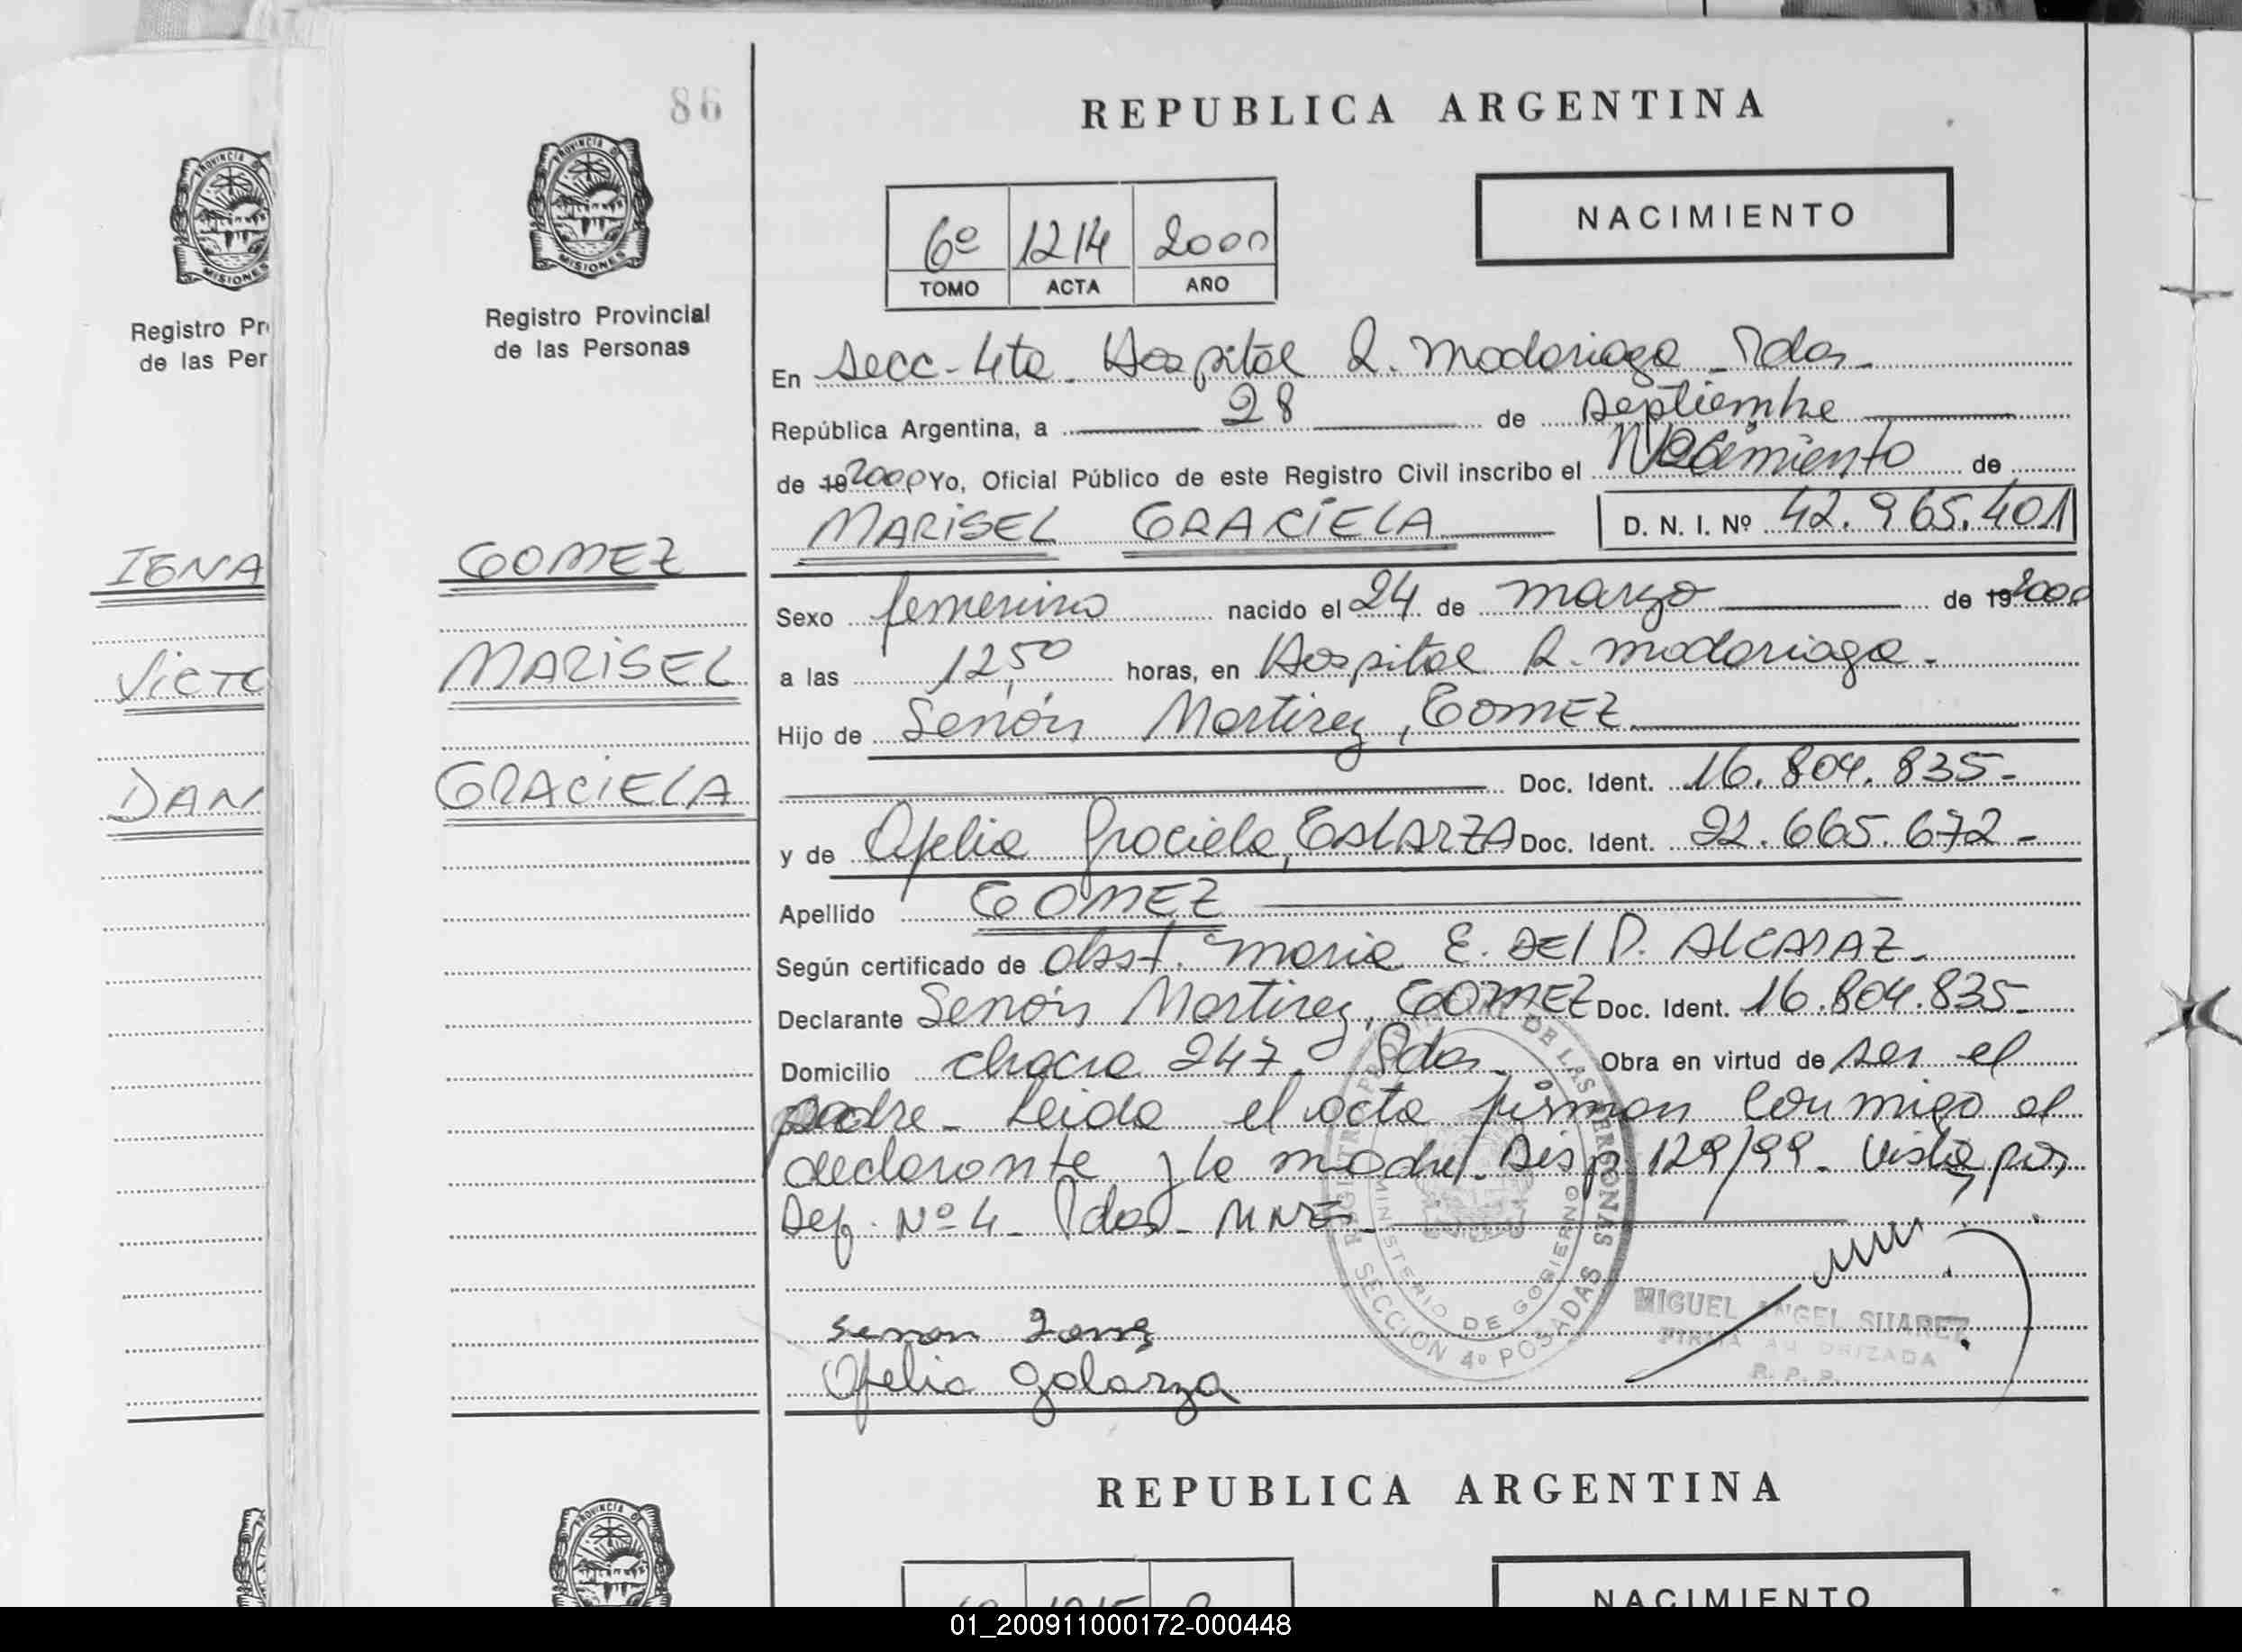 86
REPUBLICA ARGENTINA
NACIMIENTO
6º 1214 2000
TOMO ACTA AÑO
PROVINCIA D
MISIONES
Registro Pr
de las Per
IGNA
VICTO
DAN
PROVINCIA DE
MISIONES
Registro Provincial
de las Personas
GOMEZ
MARISEL
GRACIELA
En Secc. 4ta. Hospital R. Madariaga - Pdas.
República Argentina, a 28 de Septiembre
de 19 2000 Yo, Oficial Público de este Registro Civil inscribo el Nacimiento de
MARISEL GRACIELA D. N. I. Nº 42.965.401
Sexo femenino nacido el 24 de marzo de 19 2000
a las 12,50 horas, en Hospital R. Madariaga.
Hijo de Senón Martirez, GOMEZ
Doc. Ident. 16.804.835-
y de Ofelia Graciela, GALARZA Doc. Ident. 22.665.672-
Apellido GOMEZ
Según certificado de obst. Maria E. DEL P. ALCARAZ.
Declarante Senón Martirez, GOMEZ Doc. Ident. 16.804.835-
Domicilio chacra 247. Pdas. Obra en virtud de ser el
padre - Leida el acta firman conmigo el
declarante y la madre. Disp. 129/99. Vista por
Def. Nº 4 - Pdas - MNES
REGISTRO DE LAS PERSONAS
MINISTERIO DE GOBIERNO
SECCION 4º POSADAS
MIGUEL ANGEL SUAREZ
FIRMA AUTORIZADA
R. P. P.
senon Gomez
Ofelia galarza
REPUBLICA ARGENTINA
NACIMIENTO
PROVINCIA D
01_200911000172-000448